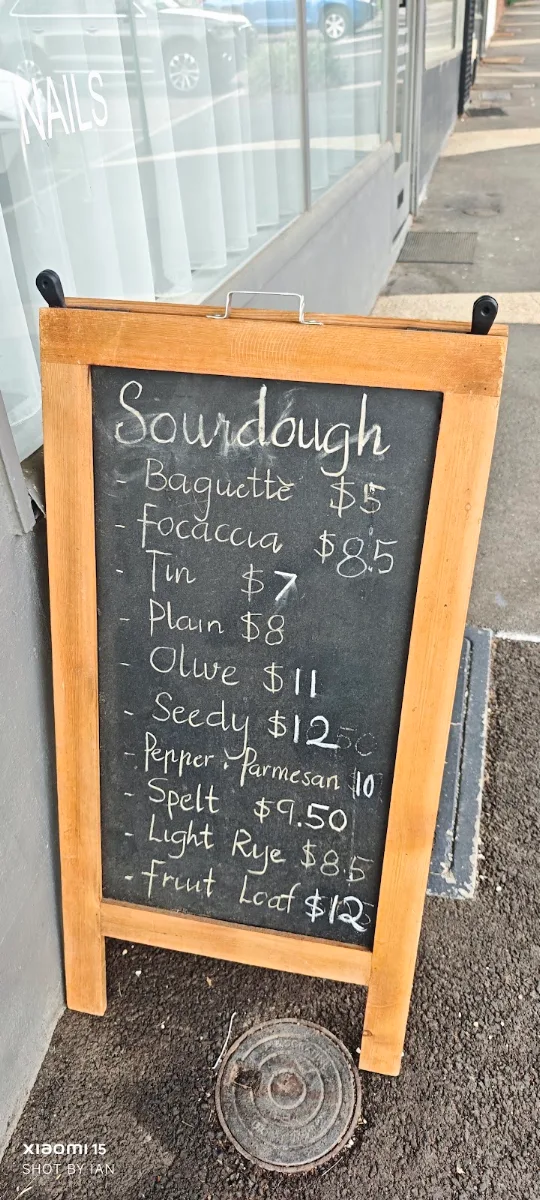 NAILS
Sourdough
- Baguette $5
- Focaccia $8.5
- Tin $7
- Plain $8
- Olive $11
- Seedy $12
- Pepper & Parmesan 10
- Spelt $9.50
- Light Rye $8.5
- Fruit Loaf $12
XIAOMI 15
SHOT BY IAN